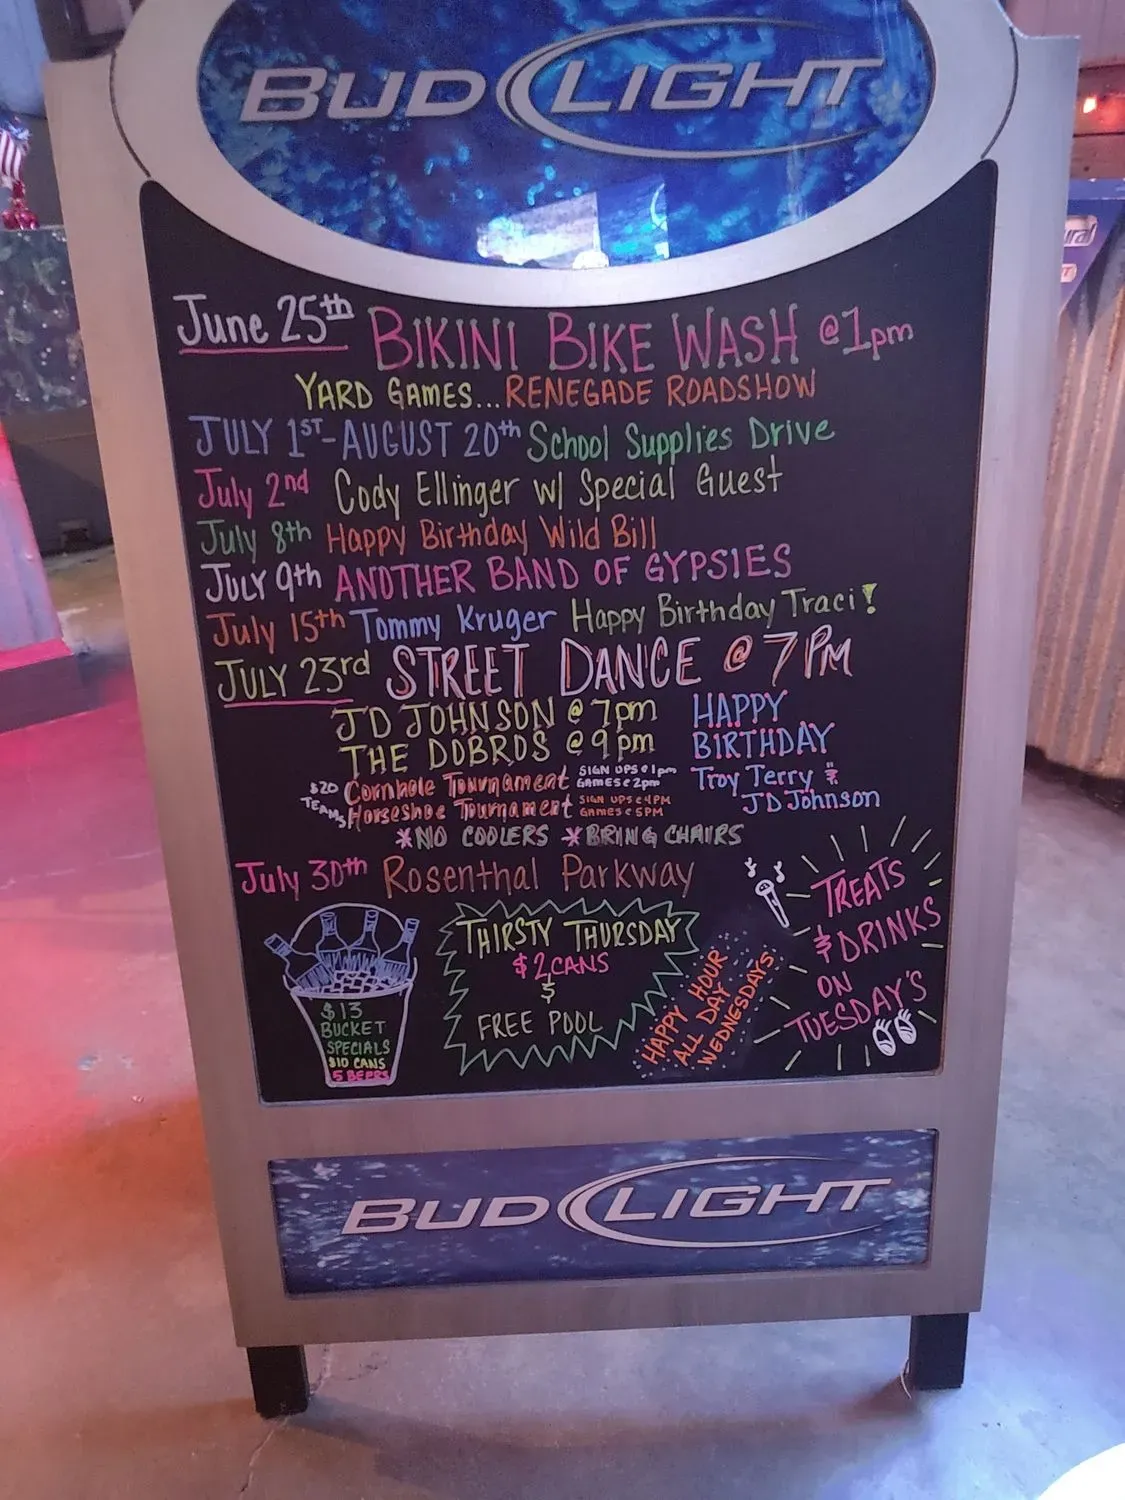 BUD LIGHT
June 25th BIKINI BIKE WASH @ 1pm
YARD GAMES... RENEGADE ROADSHOW
JULY 1ST - AUGUST 20th School Supplies Drive
July 2nd Cody Ellinger w/ Special Guest
July 8th Happy Birthday Wild Bill
JULY 9th ANOTHER BAND OF GYPSIES
July 15th Tommy Kruger Happy Birthday Traci!
JULY 23rd STREET DANCE @ 7PM
JD JOHNSON @ 7pm
THE DOBROS @ 9pm
HAPPY
BIRTHDAY
Troy Terry &
JD Johnson
$20
TEAMS
Cornhole Tournament SIGN UPS @ 1pm
GAMES @ 2pm
Horseshoe Tournament SIGN UPS @ 4PM
GAMES @ 5PM
*NO COOLERS *BRING CHAIRS
July 30th Rosenthal Parkway
$13
BUCKET
SPECIALS
$10 CANS
5 BEERS
THIRSTY THURSDAY
$2 CANS
&
FREE POOL
HAPPY HOUR
ALL DAY
WEDNESDAYS
TREATS
& DRINKS
ON
TUESDAY'S
BUD LIGHT